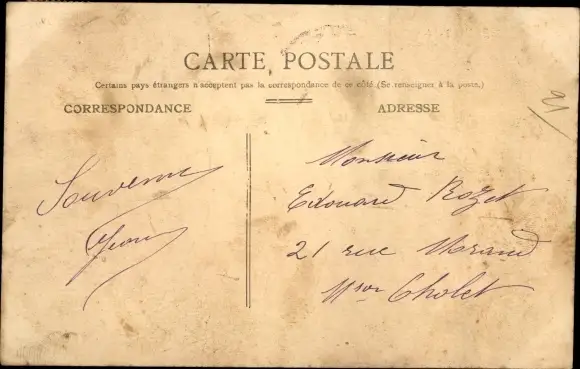 CARTE POSTALE
Certains pays étrangers n'acceptent pas la correspondance de ce côté (Se renseigner à la poste.)
CORRESPONDANCE
ADRESSE
Souvenir
Jean
Monsieur
Edouard Rozet
21 rue Morand
Mson Cholet